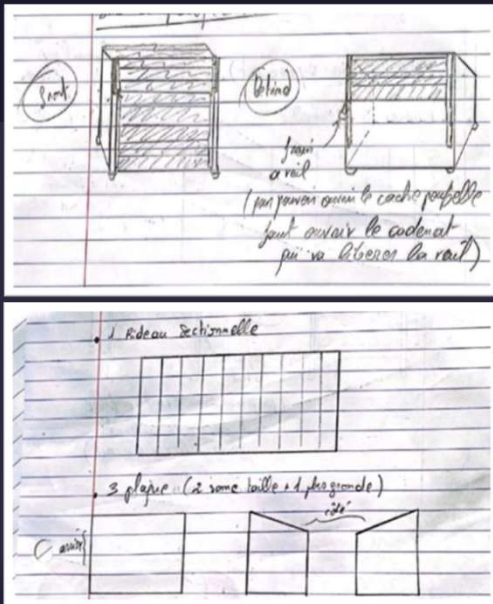 front
Behind
frein
a rail
(pour pouvoir ouvrir le cache poubelle
faut ouvrir le cadenat
qui va liberer la rail)
• 1 Rideau Sectionnelle
• 3 plaque (2 same taille + 1 plus grande)
côté
arrière